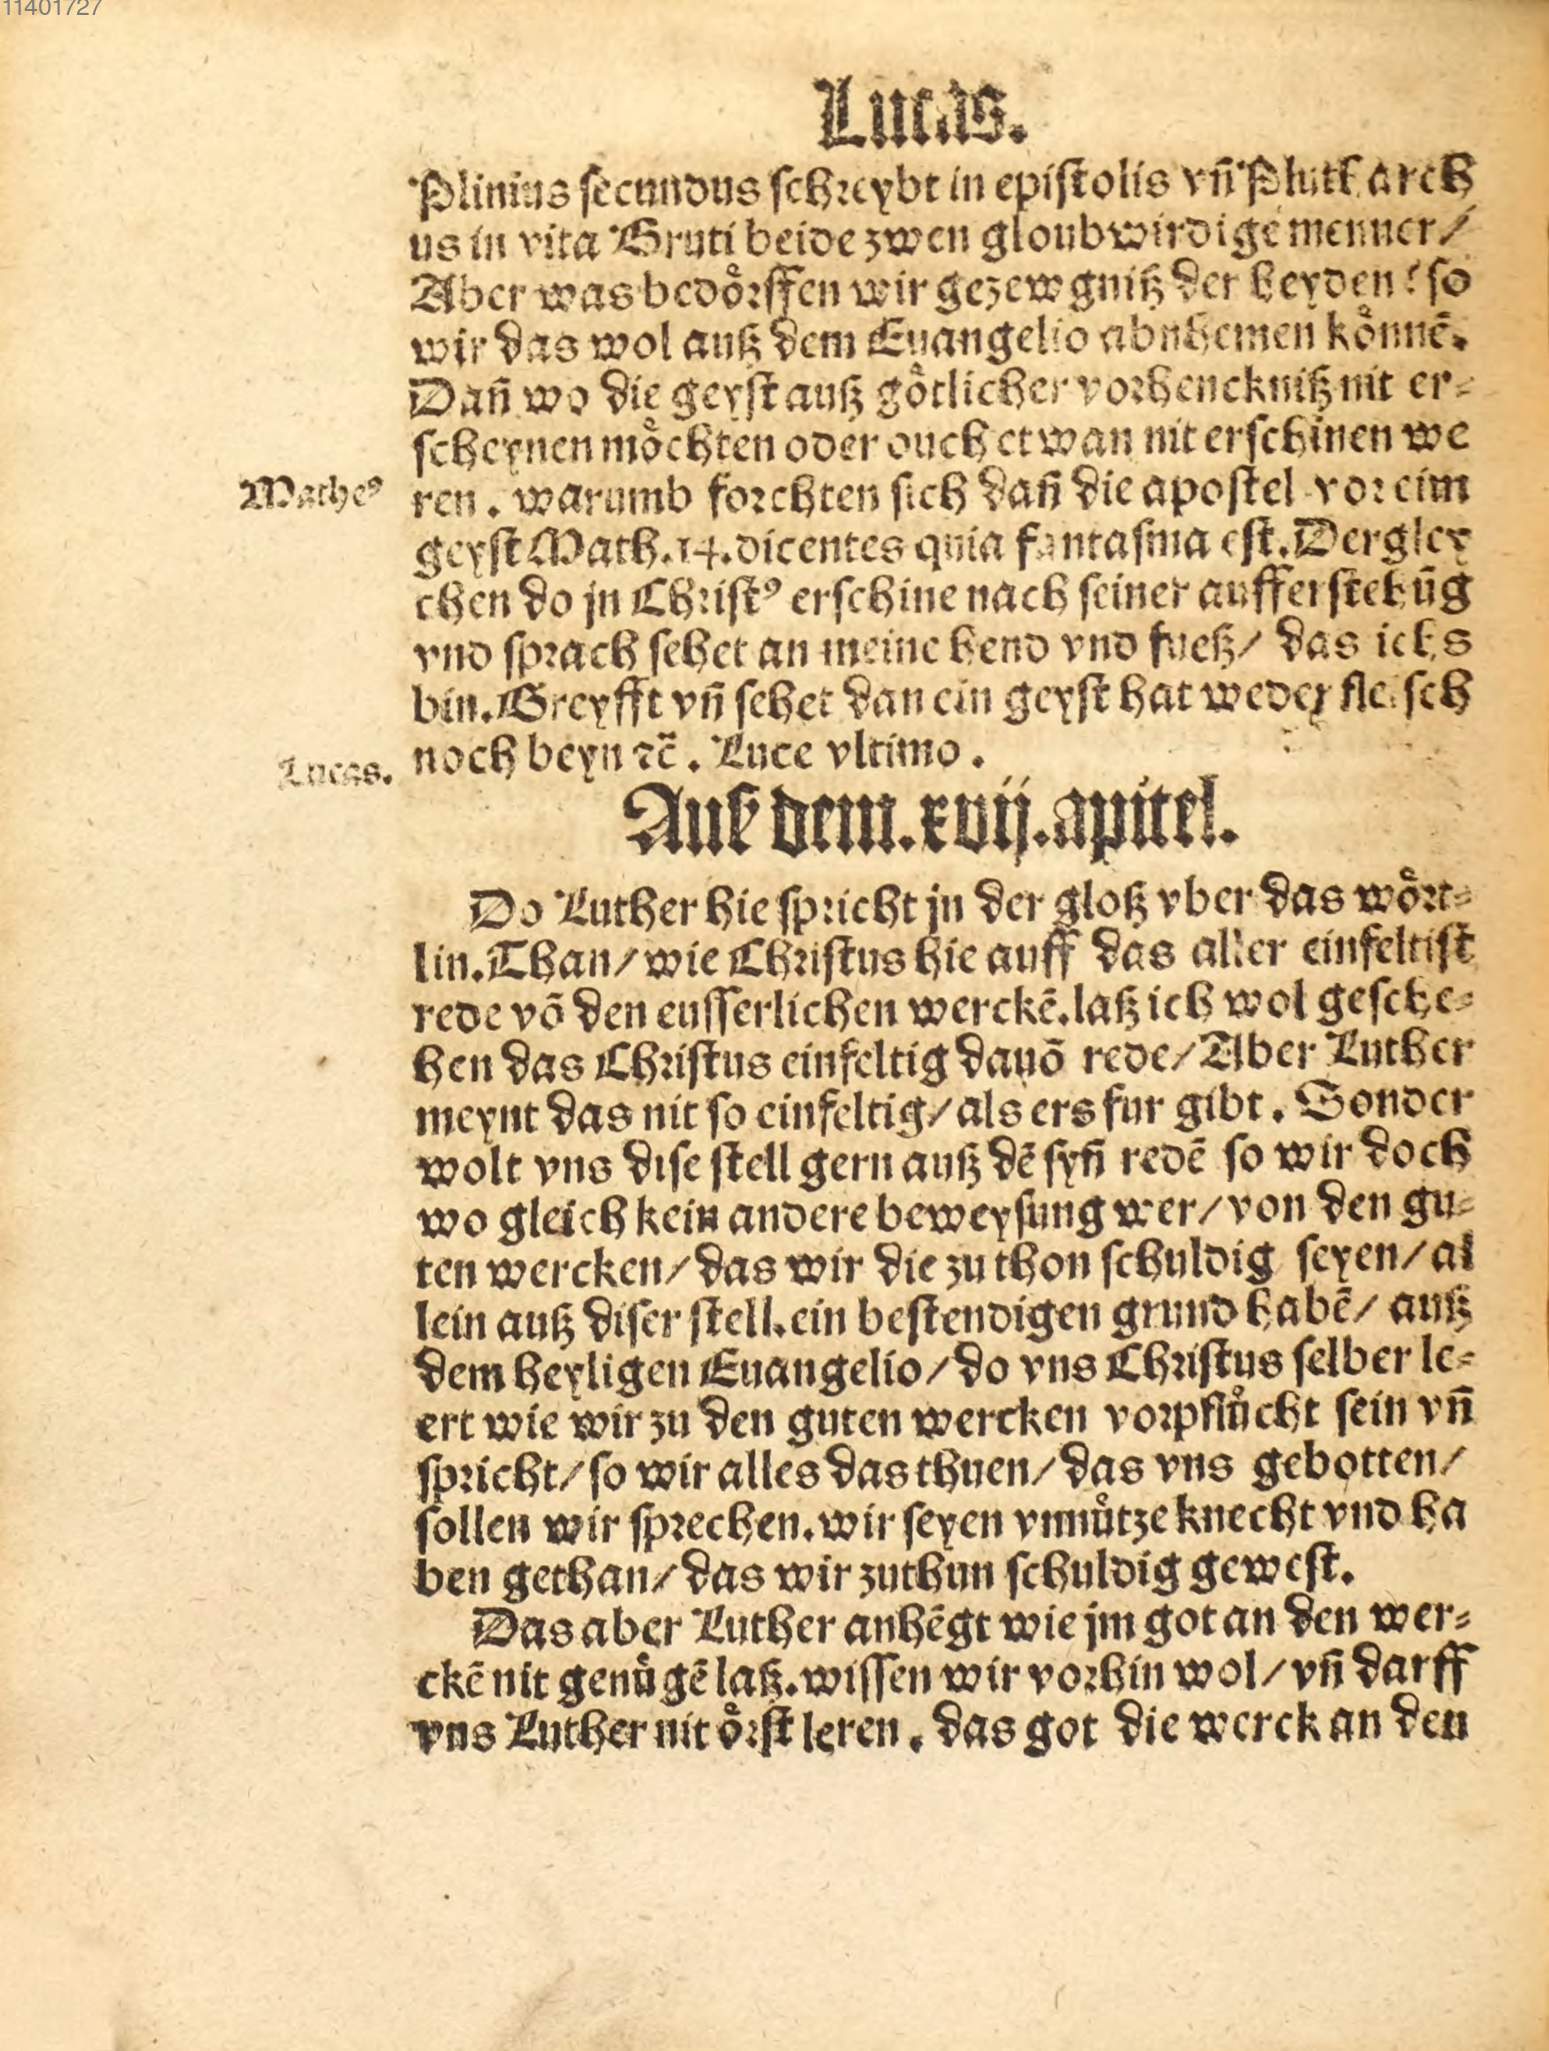 11401727
Lucas.
Plinius secundus schreybt in epistolis vn̄ Plutkarch
us in vita Bruti beide zwen gloubwirdige menner/
Aber was bedoͤrffen wir gezewgniß der heyden? so
wir das wol auß dem Euangelio abnhemen koͤnnē.
Dan̄ wo die geyst auß goͤtlicher vorhenckniß nit er-
scheynen moͤchten oder ouch etwan nit erschinen we
Matheꝰ
ren. warumb forchten sich dan̄ die apostel vor eim
geyst Math.14.dicentes quia fantasma est. Dergley
chen do jn Christꝰ erschine nach seiner aufferstehūg
vnd sprach sehet an meine hend vnd fueß/ das ichs
bin. Greyfft vn̄ sehet dan ein geyst hat weder fleisch
Lucas.
noch beyn ⁊c̄. Luce vltimo.
Auß dem.xvij.apitel.
Do Luther hie spricht jn der gloß vber das woͤrt-
lin. Than/wie Christus hie auff das aller einfeltist
rede vō den eusserlichen werckē. laß ich wol gesche-
hen das Christus einfeltig dauō rede/Aber Luther
meynt das nit so einfeltig/als ers fur gibt. Sonder
wolt vns dise stell gern auß dē syn̄ redē so wir doch
wo gleich kein andere beweysung wer/von den gu-
ten wercken/das wir die zu thon schuldig seyen/al
lein auß diser stell.ein bestendigen grund habē/ auß
dem heyligen Euangelio/do vns Christus selber le-
ert wie wir zu den guten wercken vorpfluͤcht sein vn̄
spricht/so wir alles das thuen/das vns gebotten/
sollen wir sprechen.wir seyen vnnuͤtze knecht vnd ha
ben gethan/das wir zuthun schuldig gewest.
Das aber Luther anhēgt wie jm got an den wer-
ckē nit genuͤgē laß.wissen wir vorhin wol/vn̄ darff
vns Luther nit oͤrst leren. das got die werck an den